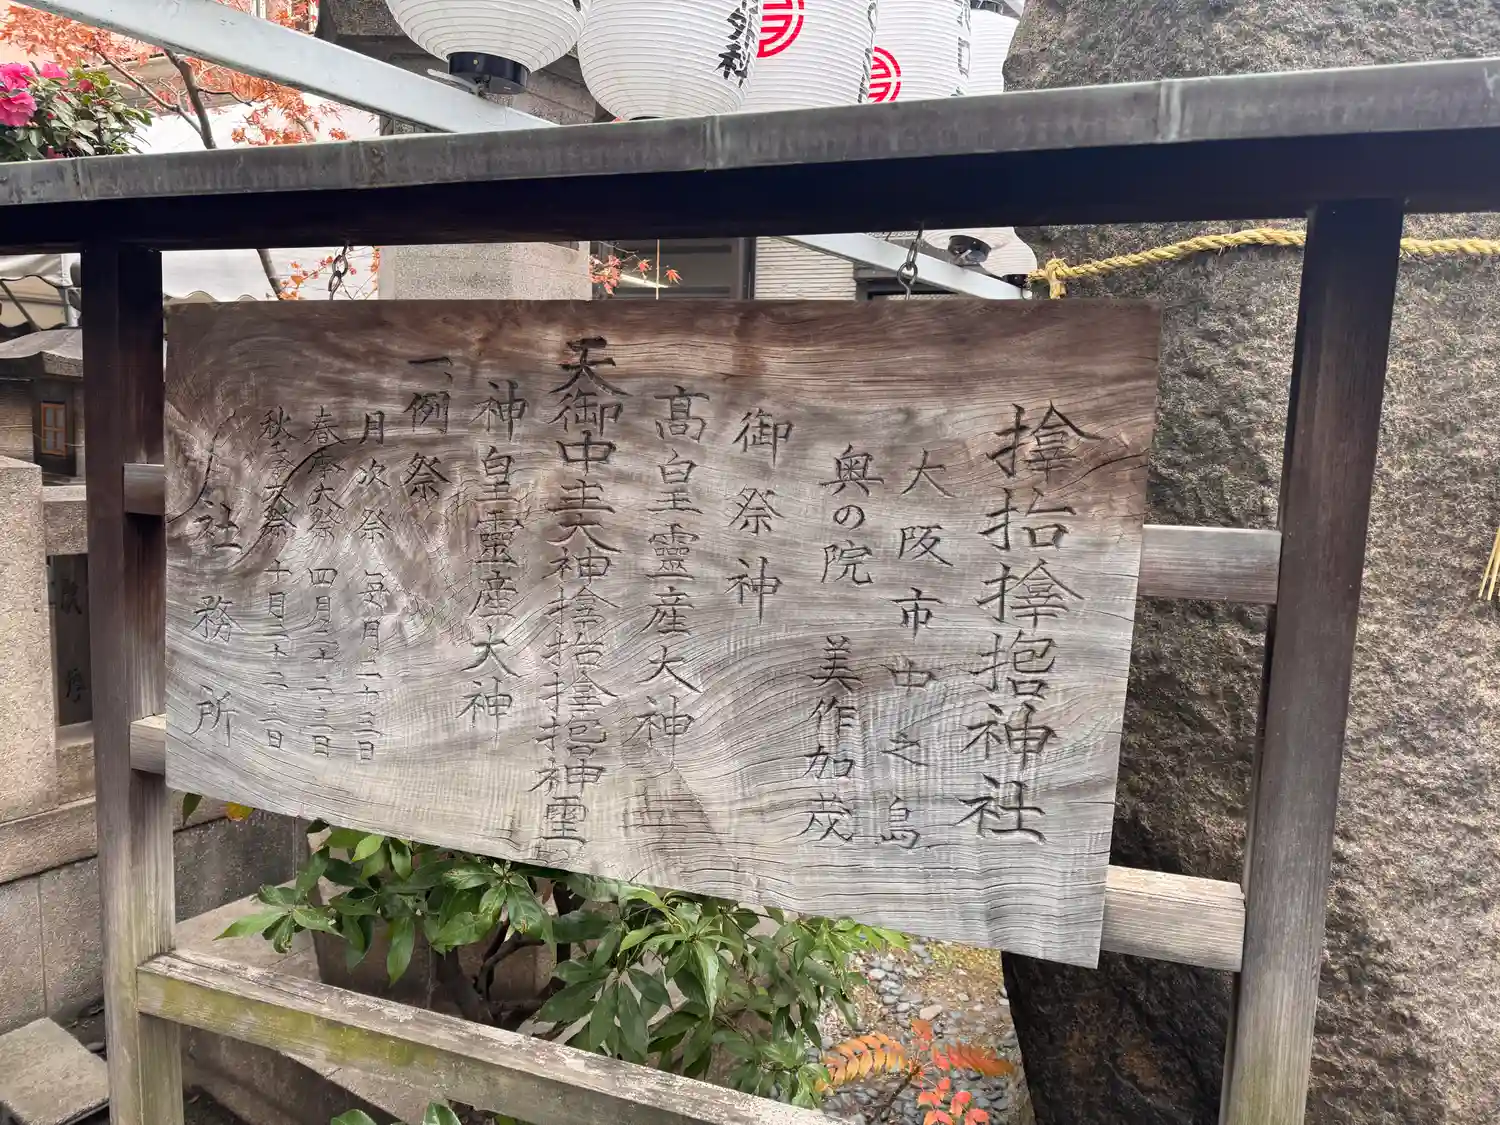 外科
𢵧抬𢵧𪮇神社
大阪市中之島
奥の院 美作加茂
御祭神
髙皇靈産大神
天御中主大神𢵧抬𢵧𪮇神霊
神皇靈産大神
一、例祭
月次祭 毎月二十三日
春季大祭 四月二十二三日
秋季大祭 十月二十二三日
社務所